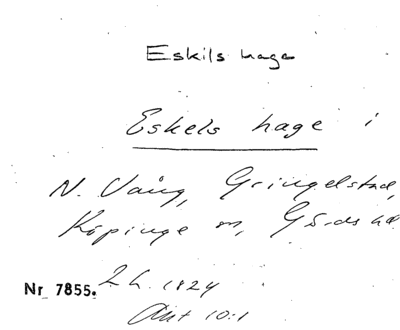 Eskils hage
Eskels hage i
N. Vång, Gringelstad,
Köpinge sn, Gärds hd
Nr 7855. L h. 1824
Akt 10:1